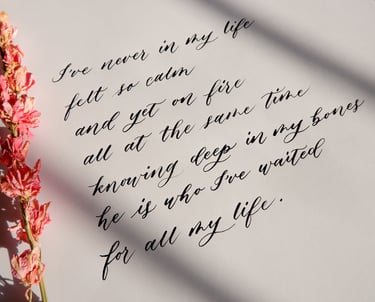 I've never in my life
felt so calm
and yet on fire
all at the same time
knowing deep in my bones
he is who I've waited
for all my life.